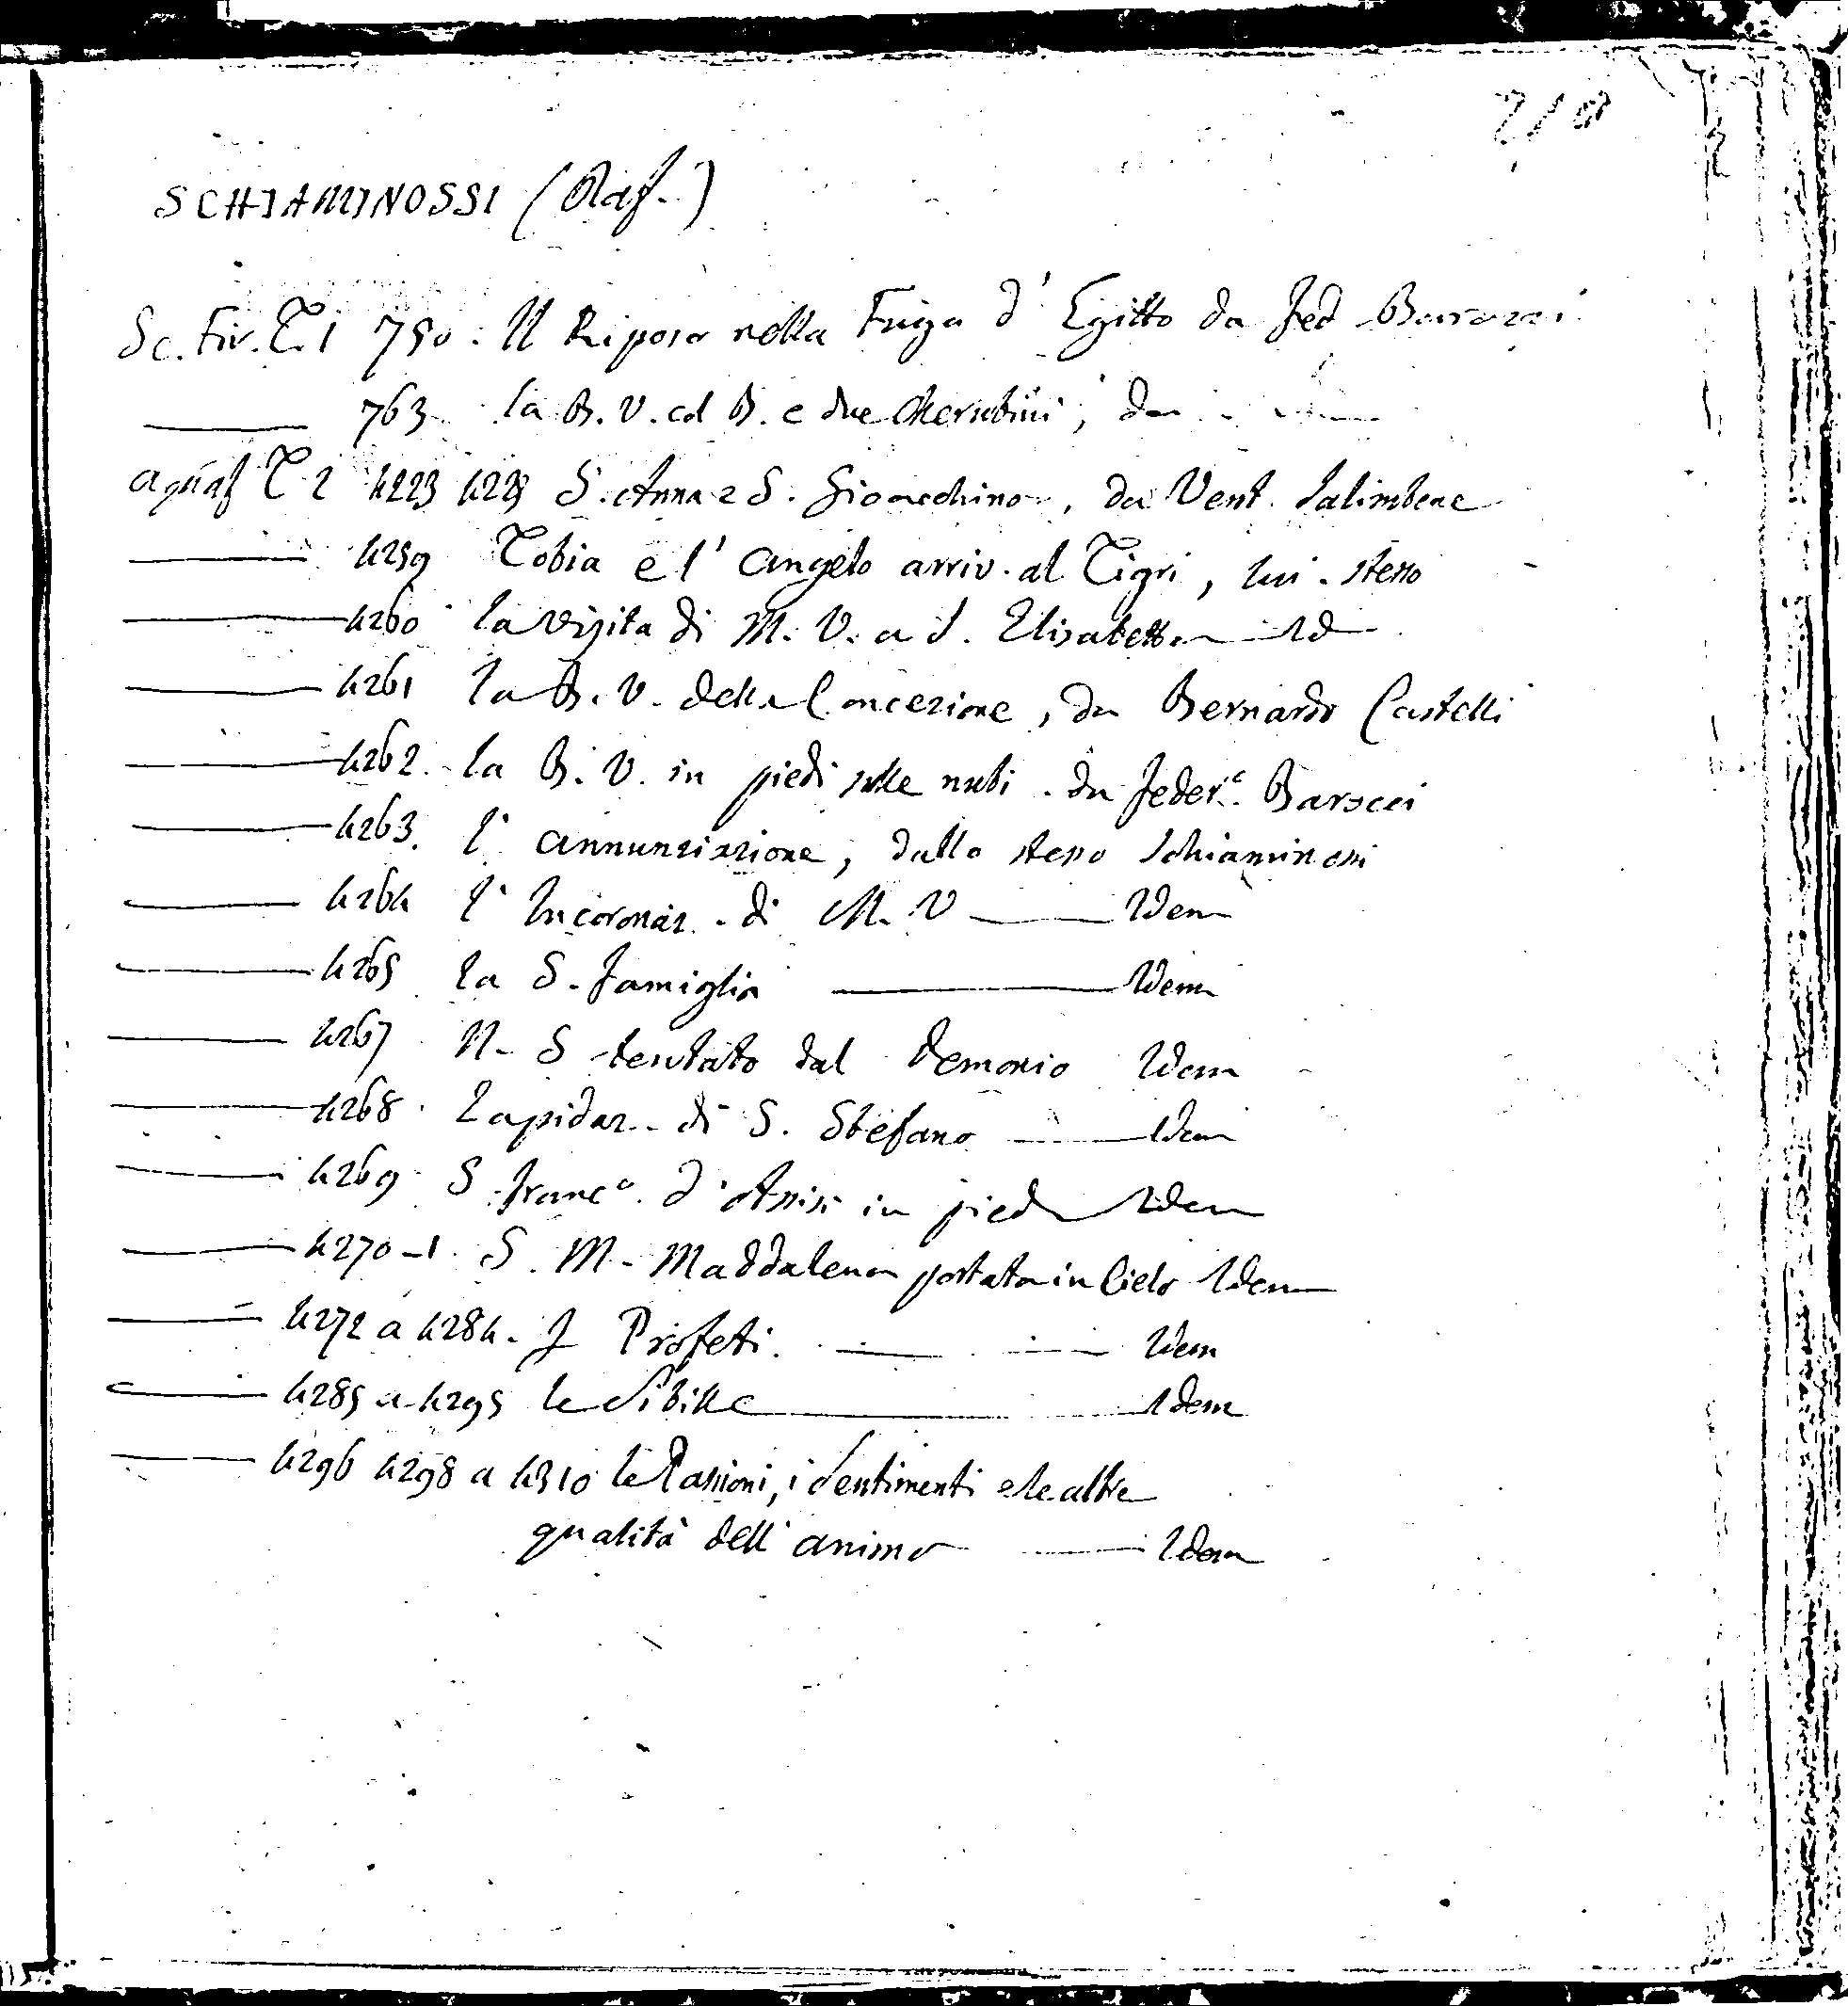 218
SCHIAMINOSSI (Raf.)
Sc. Fior. T. 1 750. Il Riposo nella Fuga d'Egitto da Fed Barozzi
763 la B. V. col B. e due Cherubini, da
acquaf T. 2 4223 4223 S. Anna e S. Gioacchino, da Vent. Salimbene
4259 Tobia e l'Angelo arriv. al Tigri, lui stesso
4260 la Visita di M. V. a S. Elisabetta Id
4261 la B. V. della Concezione, da Bernardo Castelli
4262. la B. V. in piedi sulle nubi. da Feder.º Barocci
4263. l'annunziazione, dallo stesso Schiaminossi
4264 l'Incoronaz. di M. V Idem
4265 la S. Famiglia Idem
4267 N. S tentato dal Demonio Idem
4268. Lapidaz. di S. Stefano Idem
4269 S. Francº. d'Assisi in piedi Idem
4270-1. S. M. Maddalena portata in Cielo Idem
4272 a 4284. I Profeti. Idem
4285 a 4295 le Sibille Idem
4296 4298 a 4310 le Passioni, i Sentimenti e le altre
qualità dell'animo Idem